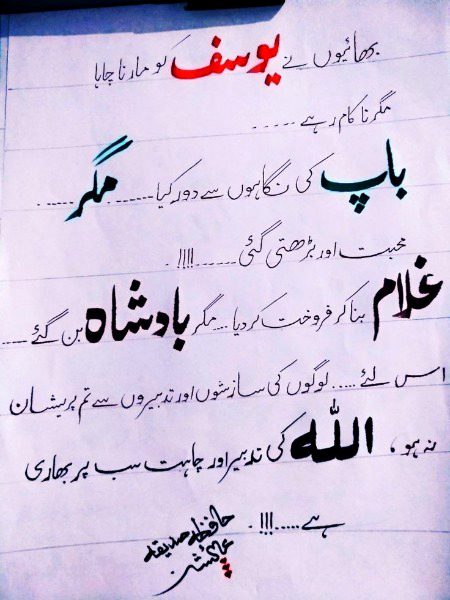 بھائیوں نے یوسف کو مارنا چاہا
مگر ناکام رہے .....
باپ کی نگاہوں سے دور کیا........ مگر .....
محبت اور بڑھتی گئی ......!!!! .
غلام بنا کر فروخت کر دیا ... مگر بادشاہ بن گئے ....
اس لئے ..... لوگوں کی سازشوں اور تدبیروں سے تم پریشان
نہ ہو ، اللہ کی تدبیر اور چاہت سب پر بھاری
ہے .....!!! .
حافظہ صدیقہ
عائشہ